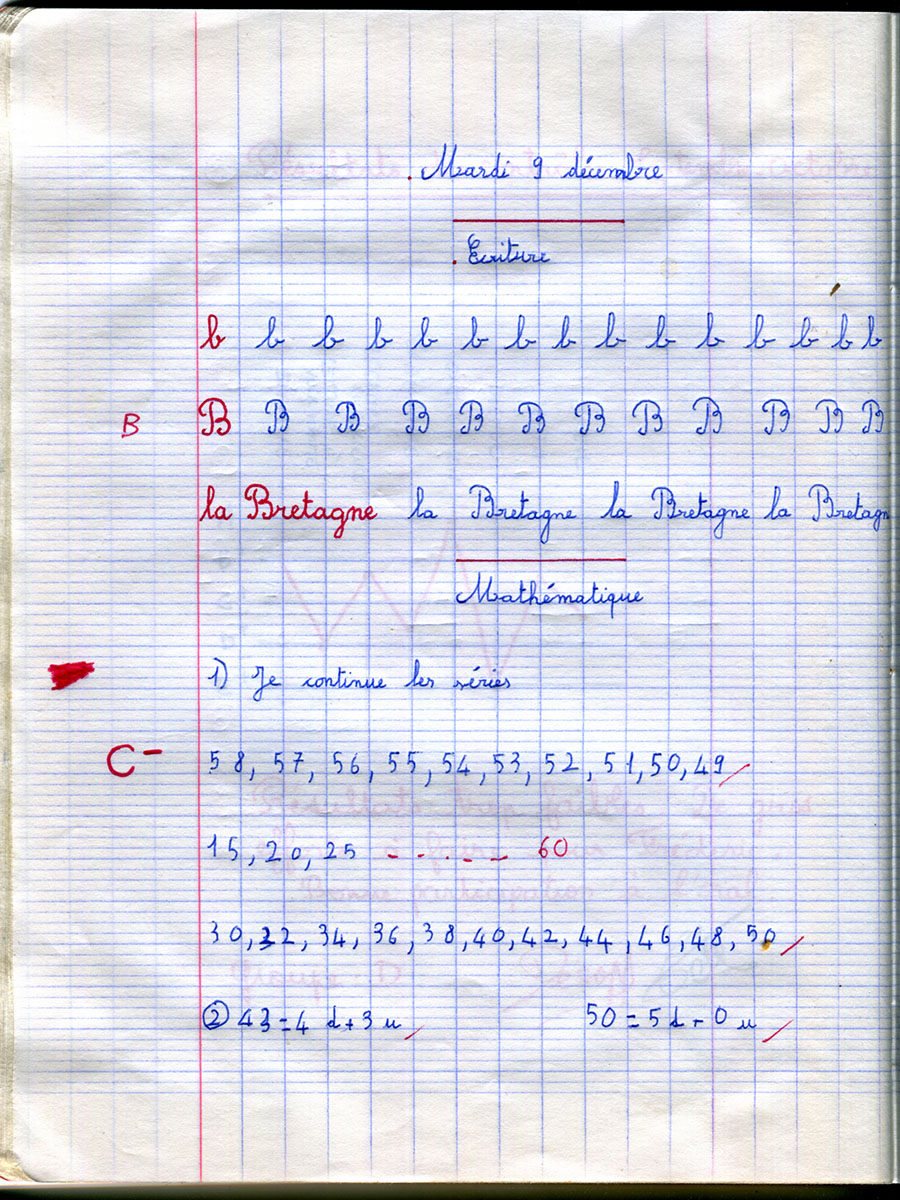 Mardi 9 décembre
Ecriture
b b b b b b b b b b b b b b
B B B B B B B B B B B B B
la Bretagne la Bretagne la Bretagne la Bretagn
Mathématique
1) Je continue les séries
C- 58, 57, 56, 55, 54, 53, 52, 51, 50, 49
15, 20, 25 - - . - - 60
30, 32, 34, 36, 38, 40, 42, 44, 46, 48, 50
② 43 = 4 d + 3 u 50 = 5 d + 0 u